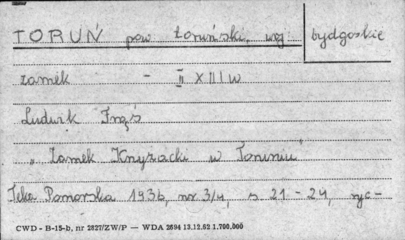 TORUŃ pow toruński, woj. bydgoskie
zamek - II XIII w
Ludwik Frąś
"Zamek Krzyżacki w Toruniu"
Teka Pomorska 1936, nr 3/4, s 21-24, ryc-
CWD - B-15-b, nr 2827/ZW/P — WDA 2694 13.12.62 1.700.000